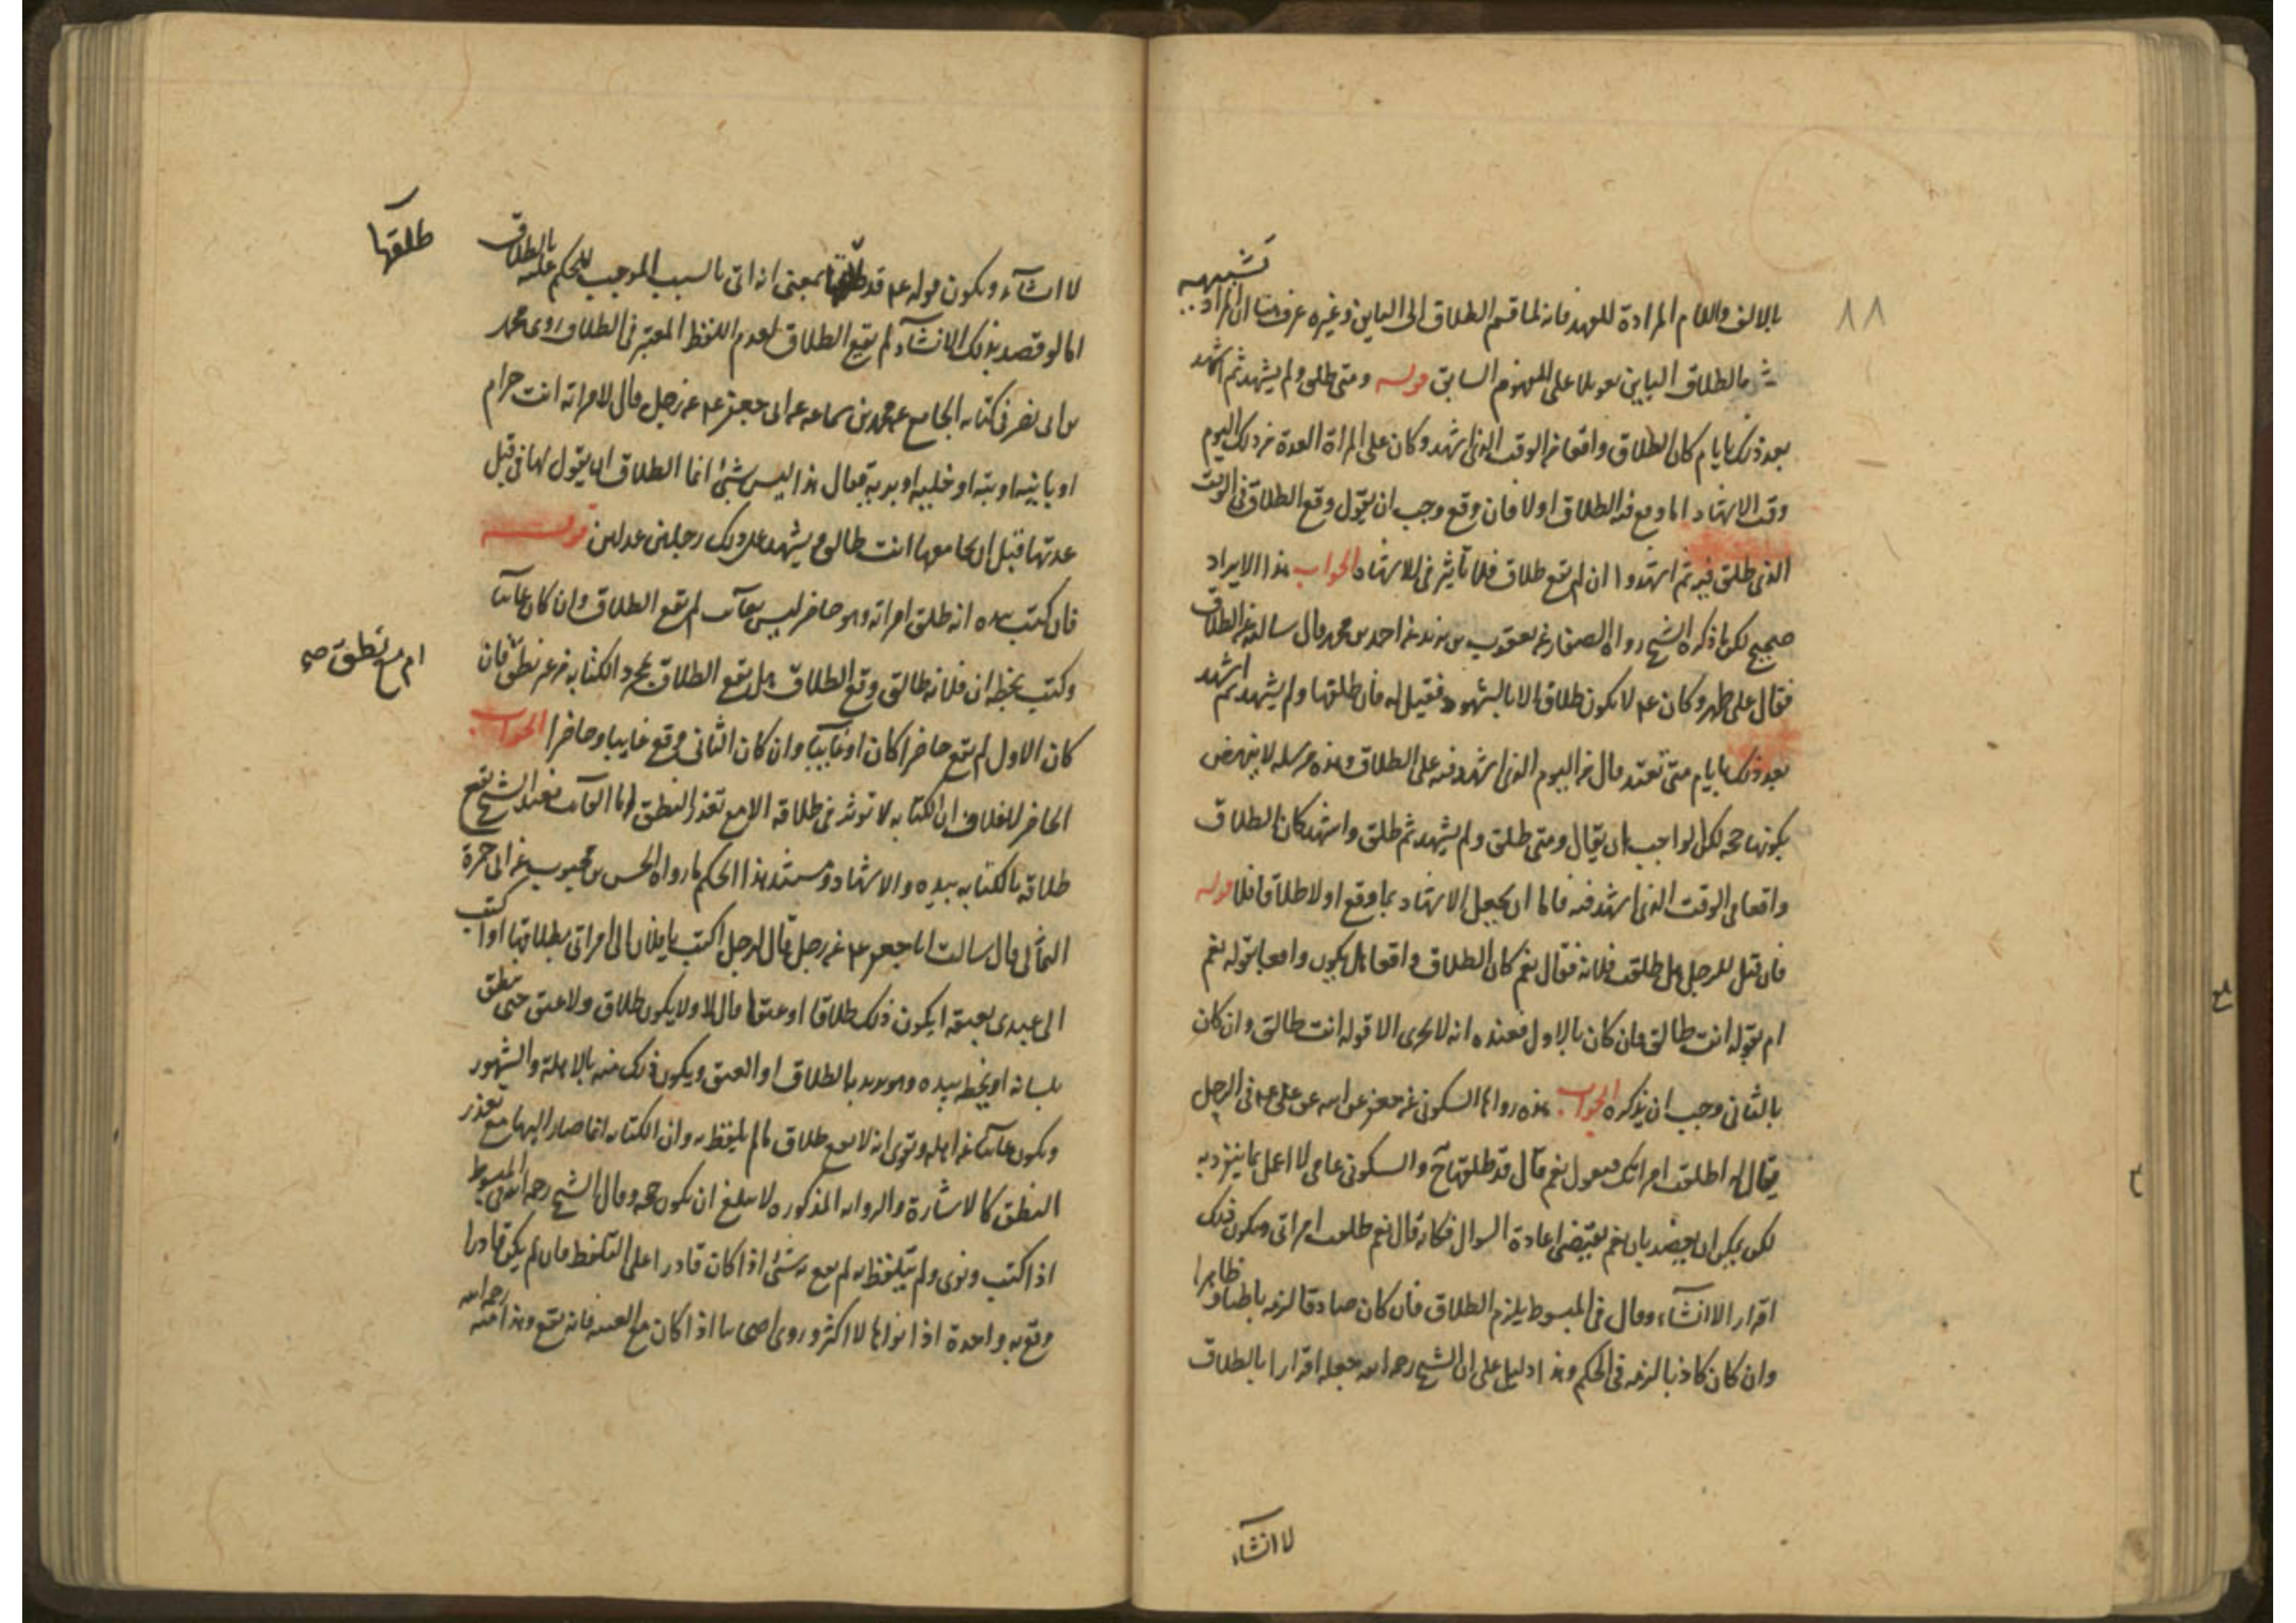 ٨٨
بالالف واللام المرادة للعهد فانه لما قسم الطلاق الى الباين وغيره عرفنا ان المراد
تشبيهه
بالطلاق الباين تعويلا على المفهوم السابق قوله ومتى طلق ولم يشهد ثم اشهد
بعد ذلك بايام كان الطلاق واقعا من الوقت الذى اشهد وكان على المراة العدة من ذلك اليوم
وقت الاشهاد اما وقع فيه الطلاق اولا فان وقع وجب ان يقول وقع الطلاق فى الوقت
الذى طلق فيه ثم اشهد وا ان لم يقع طلاق فلا تاثير فى الاشهاد الجواب هذا الايراد
صحيح لكن ما ذكره الشيخ رواه الصفار عن يعقوب بن يزيد عن احمد بن محمد قال سالته عن الطلاق
فقال على طهر وكان عم لا يكون طلاق الا بالشهود فقيل له فان طلقها ولم يشهد ثم اشهد
بعد ذلك بايام متى تعتد قال من اليوم الذى اشهد فيه على الطلاق وهذه مرسله لا ينهض
بكونها حجه لكن الواجب ان يقال ومتى طلق ولم يشهد ثم طلق واشهد كان الطلاق
واقعا فى الوقت الذى اشهد فيه فاما ان يجعل الاشهاد بما وقع اولا طلاقا فلا قوله
فان قيل للرجل هل طلقت فلانه فقال نعم كان الطلاق واقعا هل يكون واقعا بقوله نعم
ام بقوله انت طالق فان كان بالاول فعنده انه لا يجرى الا قوله انت طالق وان كان
بالثانى وجب ان يذكره الجواب هذه رواها السكونى عن جعفر عن ابيه عن على عم فى الرجل
يقال له اطلقت امراتك فيقول نعم قال قد طلقها ح والسكونى عامى لا اعمل بما ينفرد به
لكن يمكن ان يعضد بان نعم يقتضى اعادة السوال فكانه قال نعم طلقت امراتى ويكون ذلك
اقرار الا انشآء وقال فى المبسوط يلزم الطلاق فان كان صادقا لزمه باطنا وظاهرا
وان كان كاذبا لزمه فى الحكم وهذا دليل على ان الشيخ رحمه الله جعله اقرارا بالطلاق
لا انشآء
لا انشآء ويكون قوله عم قد طلقها بمعنى انه اتى بالسبب الموجب للحكم عليه بالطلاق
طلقها
اما لو قصد بذلك الانشآء لم يقع الطلاق لعدم اللفظ المعتبر فى الطلاق روى محمد
بن ابى نصر فى كتابه الجامع عن محمد بن سماعه عن ابى جعفر عم عن رجل قال لامراته انت حرام
او باينه او بته او خليه او بريه فقال هذا ليس بشئ انما الطلاق ان يقول لها فى قبل
عدتها قبل ان يجامعها انت طالق ويشهد على ذلك رجلين عدلين قوله
فان كتب بيده انه طلق امراته وهو حاضر ليس بغائب لم يقع الطلاق وان كان غائبا
وكتب بخطه ان فلانه طالق وقع الطلاق هل يقع الطلاق بمجرد الكتابه من غير نطق فان
ام مع نطق صح
كان الاول لم يقع حاضرا كان او غايبا وان كان الثانى وقع غايبا وحاضرا الجواب
الحاضر لا خلاف ان الكتابه لا توثر فى طلاقه الا مع تعذر النطق اما الغائب فعند الشيخ يقع
طلاقه بالكتابه بيده والاشهاد ومستند هذا الحكم ما رواه الحسن بن محبوب عن ابى حمزة
الثمالى قال سالت ابا جعفر عم عن رجل قال لرجل اكتب يا فلان الى امراتى بطلاقها او اكتب
الى عبدى بعتقه ايكون ذلك طلاقا او عتقا قال لا ولا يكون طلاق ولا عتق حتى ينطق
بلسانه او يخط بيده وهو يريد به الطلاق او العتق ويكون ذلك منه بالاهلة والشهور
ويكون غائبا عن اهله وقوى انه لا يقع طلاق ما لم يلفظ به وان الكتابه انما صار اليها مع تعذر
النطق كالاشارة والروايه المذكوره لا تبلغ ان يكون حجه وقال الشيخ رحمه الله فى المبسوط
اذا كتب ونوى ولم يتلفظ به لم يقع به شئ اذا كان قادرا على التلفظ فان لم يكن قادرا
وقع به واحدة اذا نواها لا اكثر وروى اصحابنا اذا كان مع الغيبه فانه يقع وهذا منه رحمه الله